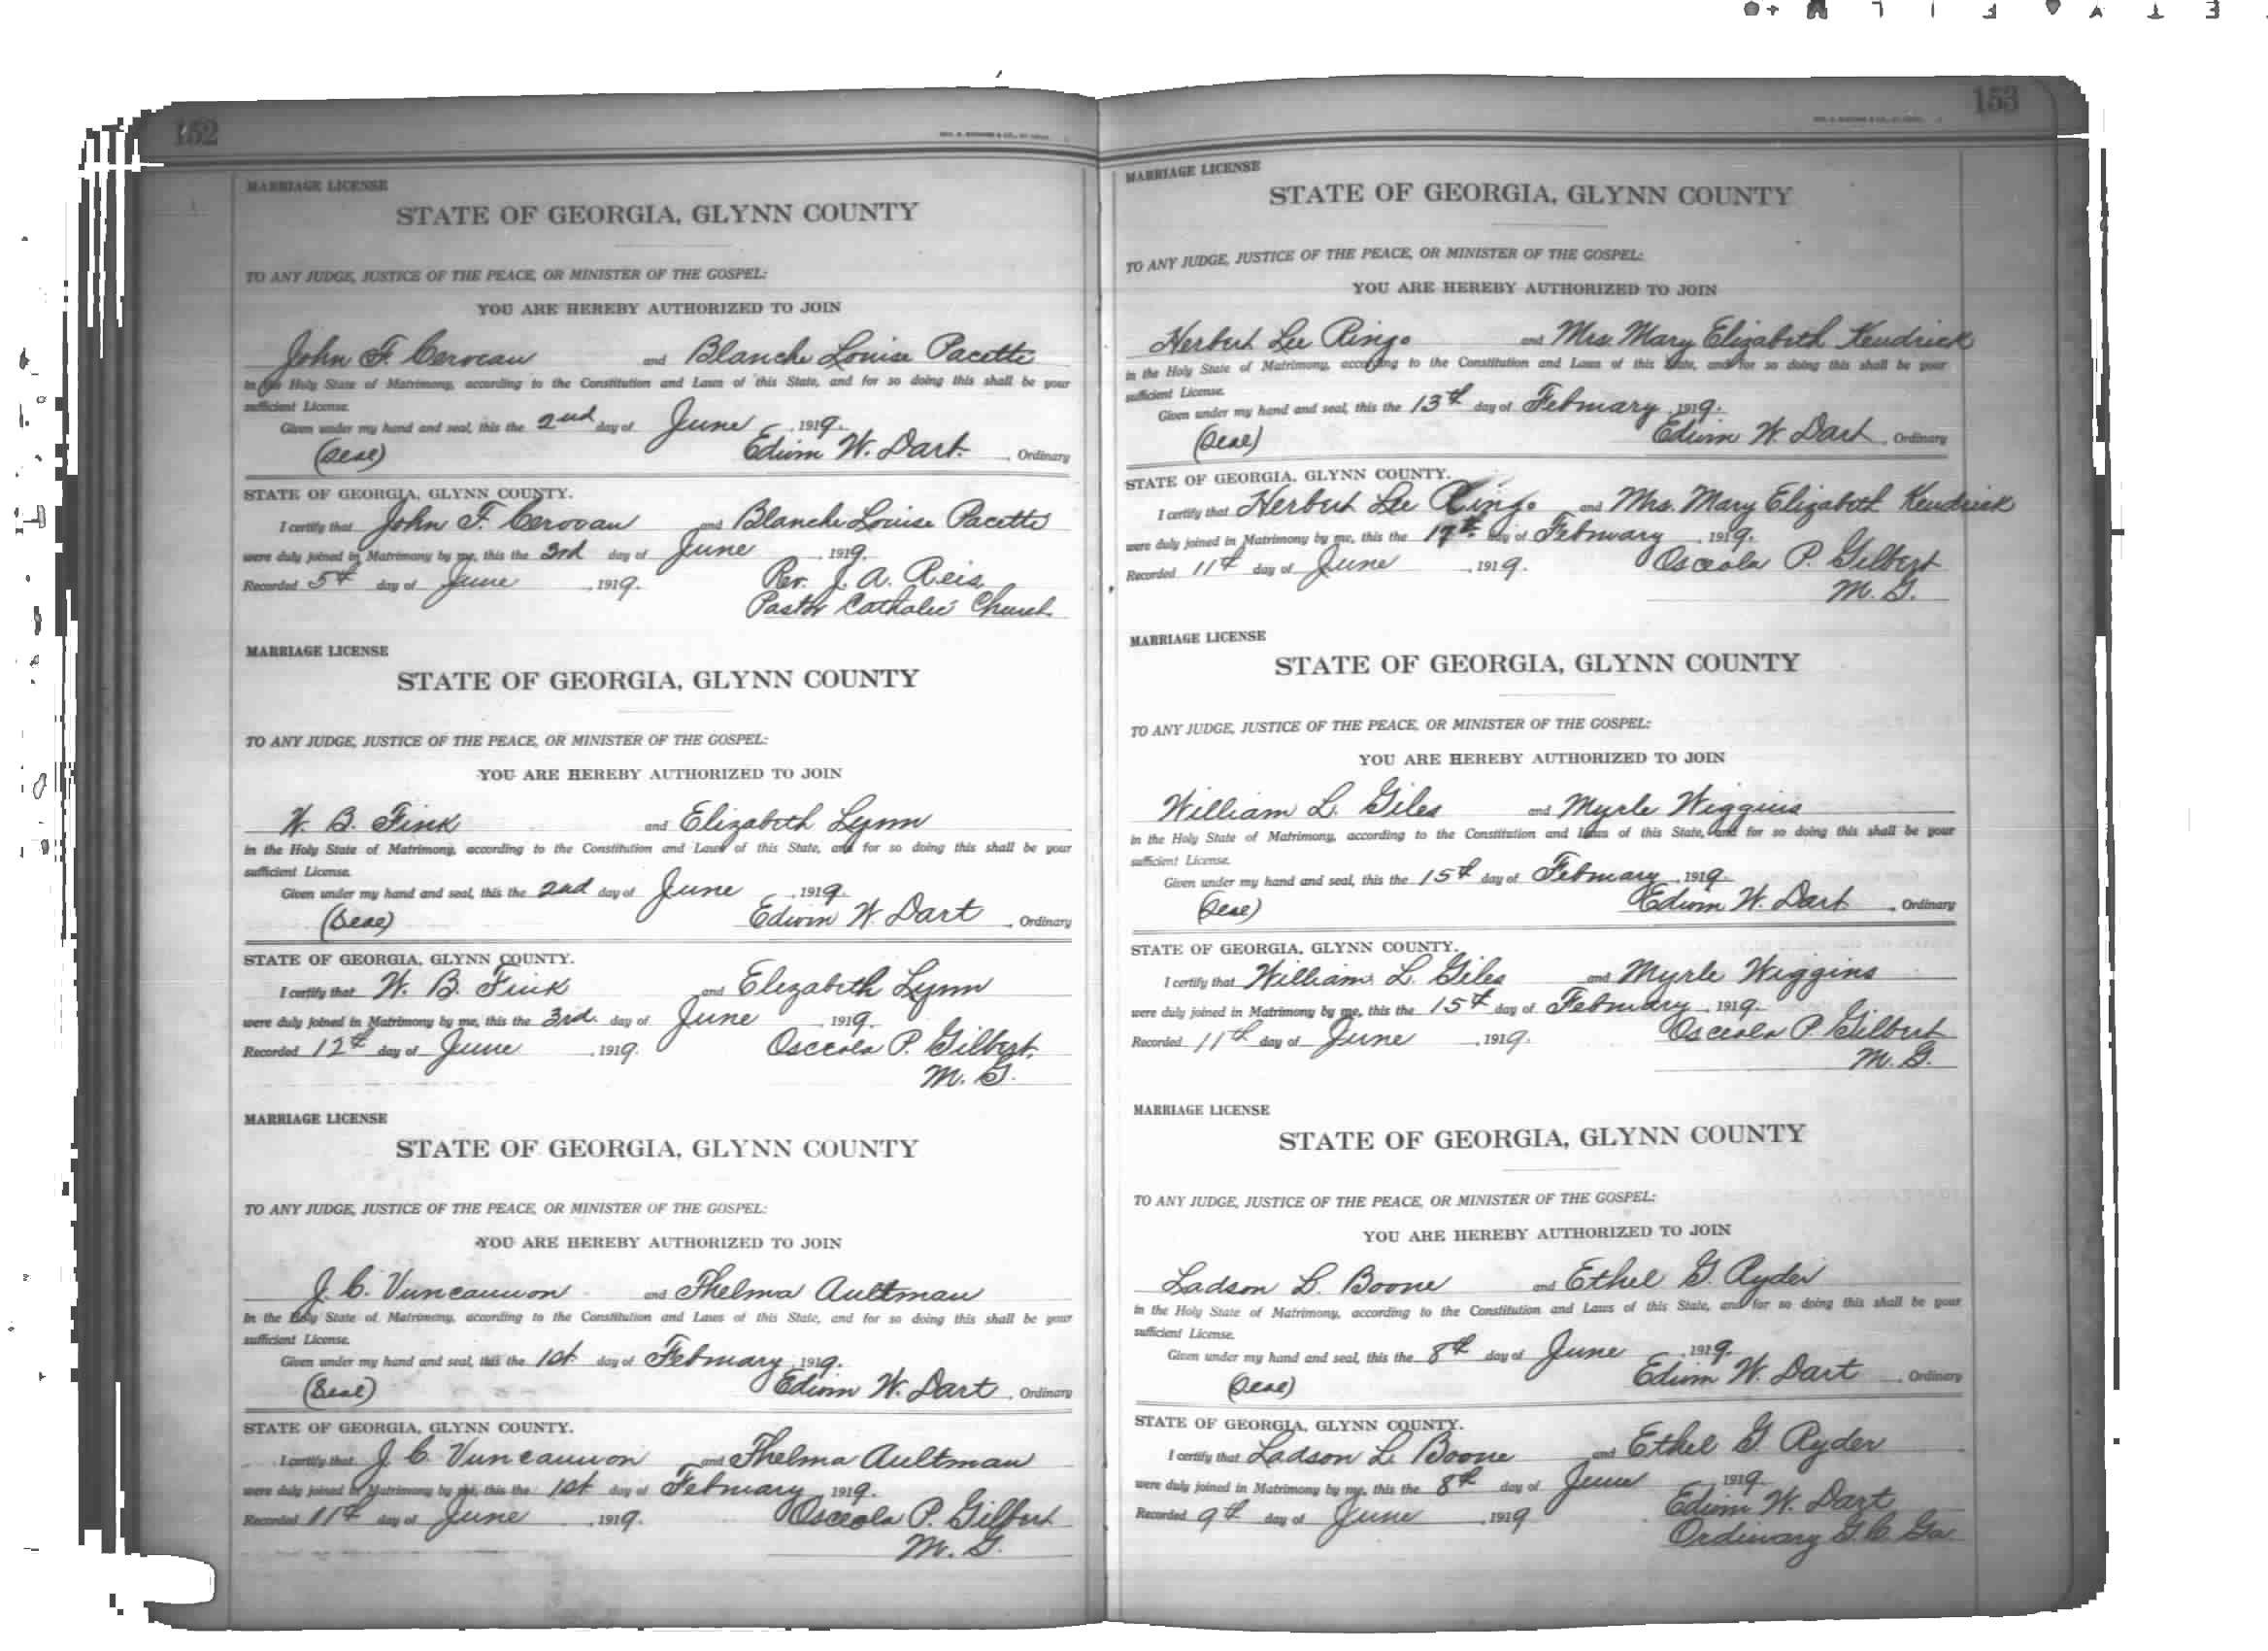 152
MARRIAGE LICENSE
STATE OF GEORGIA, GLYNN COUNTY
TO ANY JUDGE, JUSTICE OF THE PEACE, OR MINISTER OF THE GOSPEL:
YOU ARE HEREBY AUTHORIZED TO JOIN
John F. Cerovan and Blanche Louise Pacetti
in the Holy State of Matrimony, according to the Constitution and Laws of this State, and for so doing this shall be your
sufficient License.
Given under my hand and seal, this the 2nd day of June, 1919.
(Seal) Edwin W. Dart, Ordinary
STATE OF GEORGIA, GLYNN COUNTY.
I certify that John F. Cerovan and Blanche Louise Pacetti
were duly joined in Matrimony by me, this the 3rd day of June, 1919.
Recorded 5th day of June, 1919. Rev. J. A. Reis,
Pastor Catholic Church
MARRIAGE LICENSE
STATE OF GEORGIA, GLYNN COUNTY
TO ANY JUDGE, JUSTICE OF THE PEACE, OR MINISTER OF THE GOSPEL:
YOU ARE HEREBY AUTHORIZED TO JOIN
W. B. Fink and Elizabeth Lynn
in the Holy State of Matrimony, according to the Constitution and Laws of this State, and for so doing this shall be your
sufficient License.
Given under my hand and seal, this the 2nd day of June, 1919.
(Seal) Edwin W. Dart, Ordinary
STATE OF GEORGIA, GLYNN COUNTY.
I certify that W. B. Fink and Elizabeth Lynn
were duly joined in Matrimony by me, this the 3rd. day of June, 1919.
Recorded 12th day of June, 1919. Osceola P. Gilbert,
M. G.
MARRIAGE LICENSE
STATE OF GEORGIA, GLYNN COUNTY
TO ANY JUDGE, JUSTICE OF THE PEACE, OR MINISTER OF THE GOSPEL:
YOU ARE HEREBY AUTHORIZED TO JOIN
J. C. Vuncannon and Thelma Aultman
in the Holy State of Matrimony, according to the Constitution and Laws of this State, and for so doing this shall be your
sufficient License.
Given under my hand and seal, this the 1st. day of February, 1919.
(Seal) Edwin W. Dart, Ordinary
STATE OF GEORGIA, GLYNN COUNTY.
I certify that J. C. Vuncannon and Thelma Aultman
were duly joined in Matrimony by me, this the 1st. day of February, 1919.
Recorded 11th day of June, 1919. Osceola P. Gilbert
M. G.
153
MARRIAGE LICENSE
STATE OF GEORGIA, GLYNN COUNTY
TO ANY JUDGE, JUSTICE OF THE PEACE, OR MINISTER OF THE GOSPEL:
YOU ARE HEREBY AUTHORIZED TO JOIN
Herbert Lee Ringo and Mrs. Mary Elizabeth Kendrick
in the Holy State of Matrimony, according to the Constitution and Laws of this State, and for so doing this shall be your
sufficient License.
Given under my hand and seal, this the 13th day of February, 1919.
(Seal) Edwin W. Dart, Ordinary
STATE OF GEORGIA, GLYNN COUNTY.
I certify that Herbert Lee Ringo and Mrs. Mary Elizabeth Kendrick
were duly joined in Matrimony by me, this the 17th day of February, 1919.
Recorded 11th day of June, 1919. Osceola P. Gilbert
M. G.
MARRIAGE LICENSE
STATE OF GEORGIA, GLYNN COUNTY
TO ANY JUDGE, JUSTICE OF THE PEACE, OR MINISTER OF THE GOSPEL:
YOU ARE HEREBY AUTHORIZED TO JOIN
William L. Giles and Myrle Wiggins
in the Holy State of Matrimony, according to the Constitution and Laws of this State, and for so doing this shall be your
sufficient License.
Given under my hand and seal, this the 15th day of February, 1919.
(Seal) Edwin W. Dart, Ordinary
STATE OF GEORGIA, GLYNN COUNTY.
I certify that William L. Giles and Myrle Wiggins
were duly joined in Matrimony by me, this the 15th day of February, 1919.
Recorded 11th day of June, 1919. Osceola P. Gilbert
M. G.
MARRIAGE LICENSE
STATE OF GEORGIA, GLYNN COUNTY
TO ANY JUDGE, JUSTICE OF THE PEACE, OR MINISTER OF THE GOSPEL:
YOU ARE HEREBY AUTHORIZED TO JOIN
Ladson L. Boone and Ethel G. Ryder
in the Holy State of Matrimony, according to the Constitution and Laws of this State, and for so doing this shall be your
sufficient License.
Given under my hand and seal, this the 8th day of June, 1919.
(Seal) Edwin W. Dart, Ordinary
STATE OF GEORGIA, GLYNN COUNTY.
I certify that Ladson L. Boone and Ethel G. Ryder
were duly joined in Matrimony by me, this the 8th day of June 1919
Recorded 9th day of June, 1919 Edwin W. Dart
Ordinary G. C. Ga.